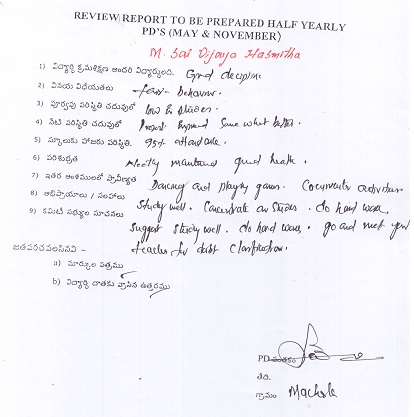 REVIEW REPORT TO BE PREPARED HALF YEARLY
PD'S (MAY & NOVEMBER)
M. Sai Vijaya Hasmitha
1) విద్యార్థి క్రమశిక్షణ అందరి విద్యార్థులది. Good decipline
2) వినయ విధేయతలు fair - behaviour.
3) పూర్వపు పరిస్థితి చదువులో low in studies.
4) నేటి పరిస్థితి చదువులో Present Improved Some what better.
5) స్కూలుకు హాజరు పరిస్థితి. 95% attendance.
6) పరిశుభ్రత Neatly maintained good health.
7) ఇతర అంశములలో ప్రావీణ్యత Dancing and playing games. activities
8) అభిప్రాయాలు / సలహాలు Study well. Concentrate on Studies. do hard work,
9) కమిటీ సభ్యుల సూచనలు Suggest Study well. do hard work, go and meet your
teacher for doubt Clarification.
జతపరచవలసినవి :-
a) మార్కుల పత్రము
b) విద్యార్థి దాతకు వ్రాసిన ఉత్తరము
PD సంతకం
తేది.
గ్రామం